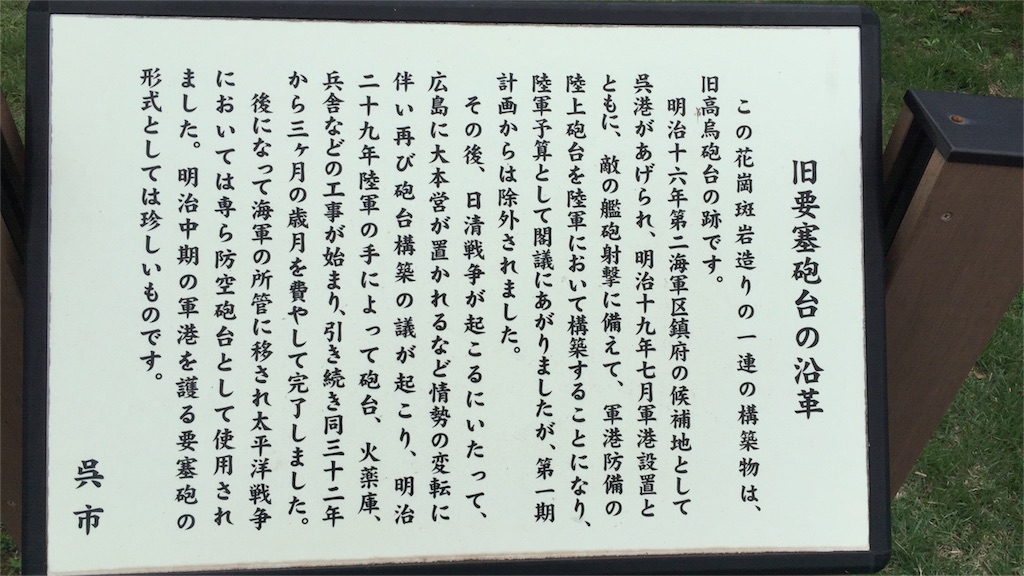 旧要塞砲台の沿革
この花崗斑岩造りの一連の構築物は、
旧高烏砲台の跡です。
明治十六年第二海軍区鎮府の候補地として
呉港があげられ、明治十九年七月軍港設置と
ともに、敵の艦砲射撃に備えて、軍港防備の
陸上砲台を陸軍において構築することになり、
陸軍予算として閣議にあがりましたが、第一期
計画からは除外されました。
その後、日清戦争が起こるにいたって、
広島に大本営が置かれるなど情勢の変転に
伴い再び砲台構築の議が起こり、明治
二十九年陸軍の手によって砲台、火薬庫、
兵舎などの工事が始まり、引き続き同三十二年
から三ヶ月の歳月を費やして完了しました。
後になって海軍の所管に移され太平洋戦争
においては専ら防空砲台として使用され
ました。明治中期の軍港を護る要塞砲の
形式としては珍しいものです。
呉市